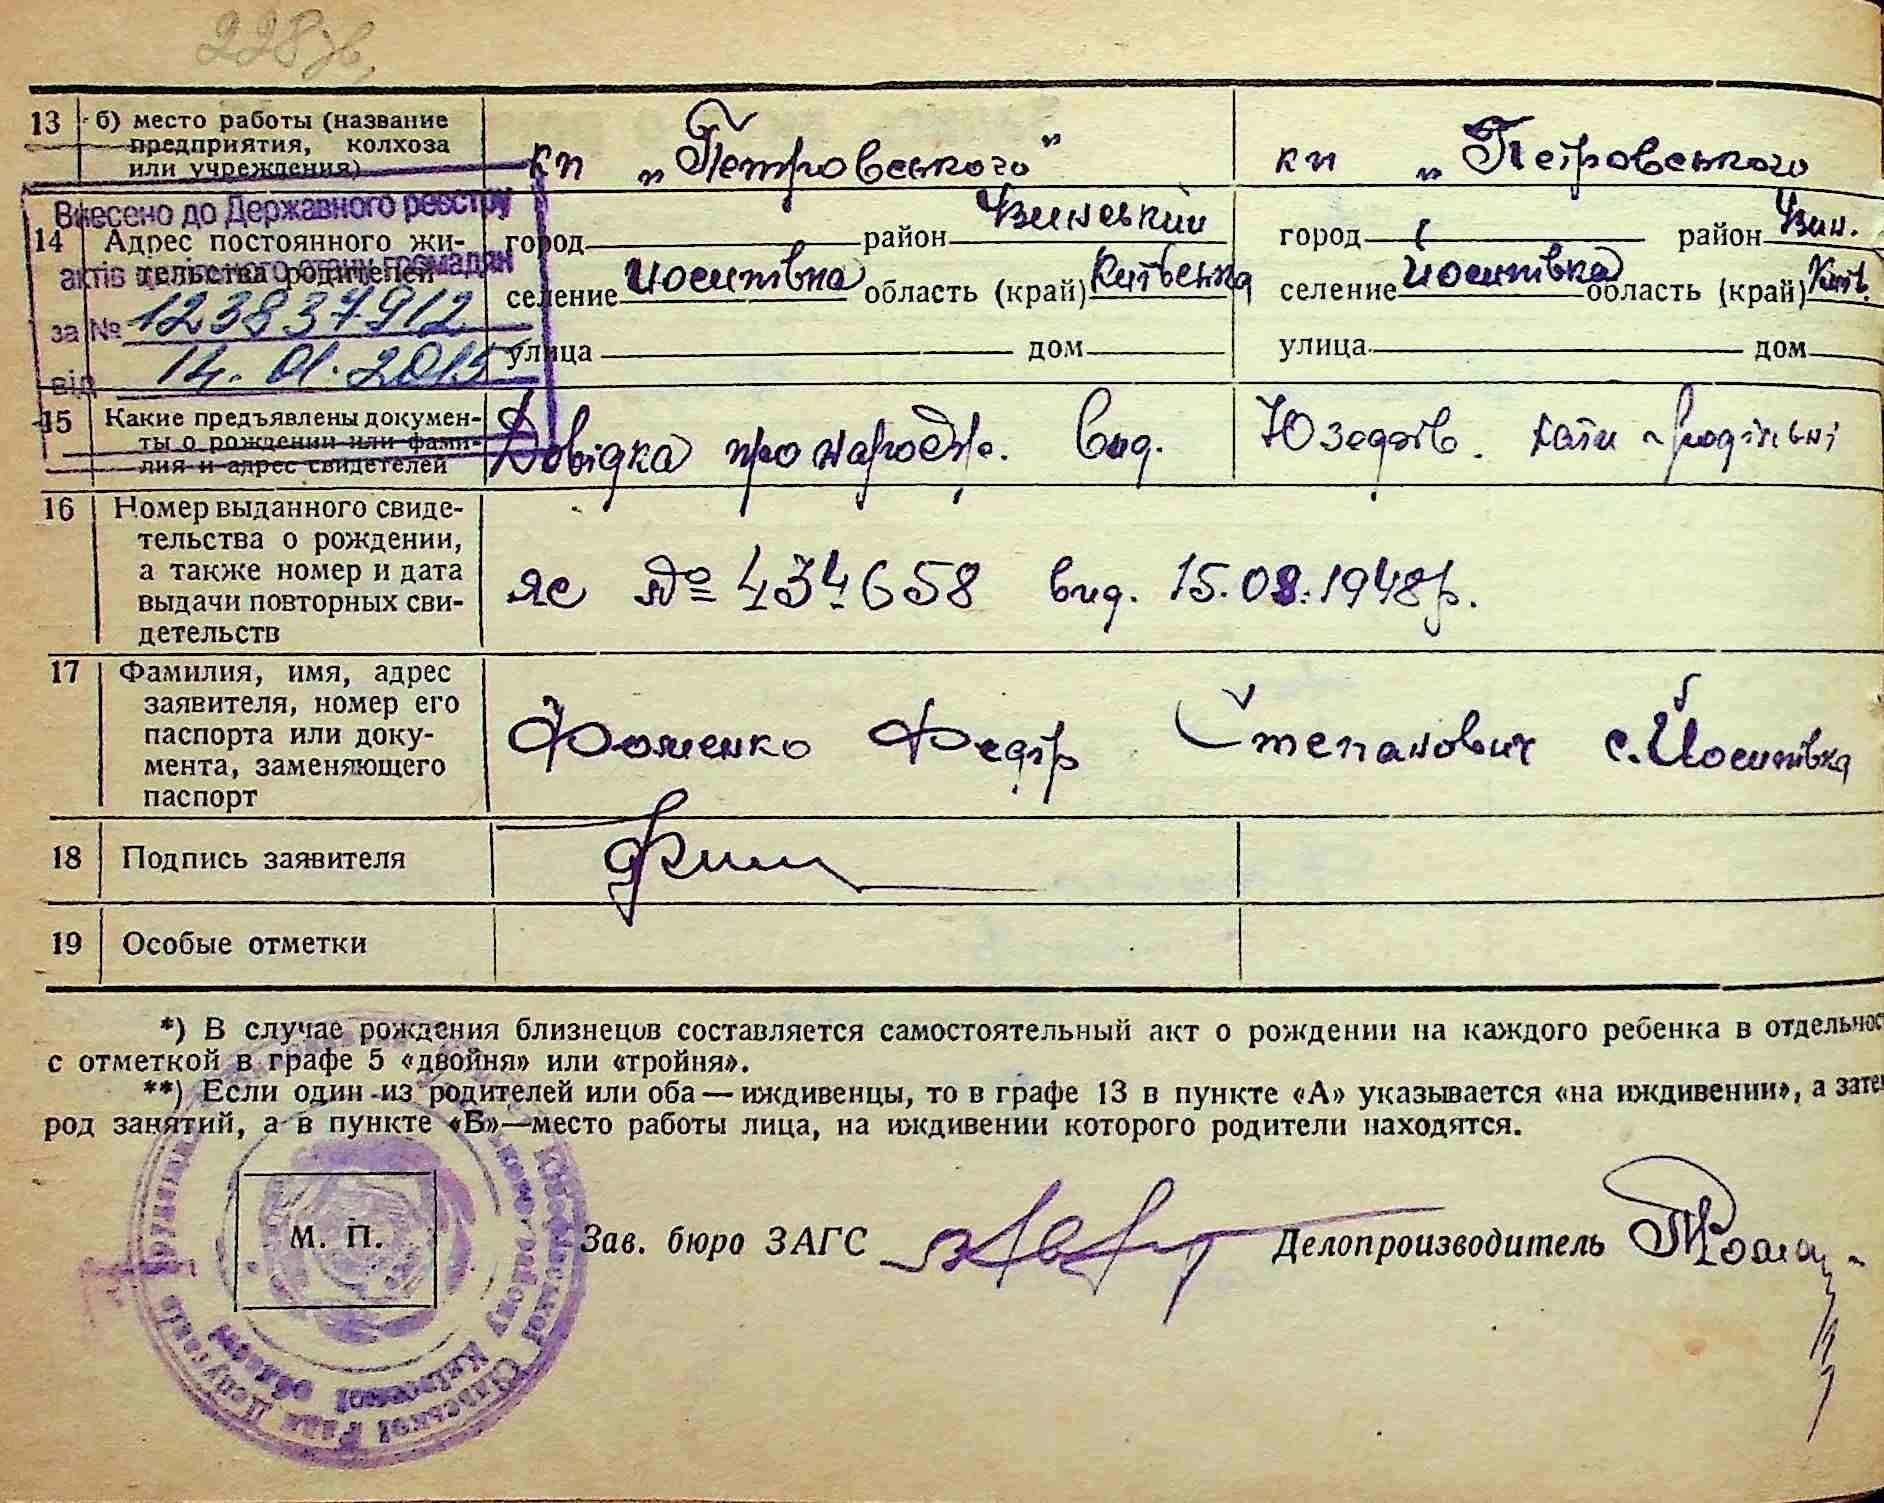 228
13 б) место работы (название предприятия, колхоза или учреждения)
кп „Петровського"
кп „Петровського
Внесено до Державного реєстру
актів цивільного стану громадян
за № 123837912
від 14.01.2015
14 Адрес постоянного жительства родителей
город район Узинський
селение Йосипівка область (край) Київська
улица дом
город район Узин.
селение Йосипівка область (край) Київ.
улица дом
15 Какие предъявлены документы о рождении или фамилия и адрес свидетелей
Довідка про народж. вид.
16 Номер выданного свидетельства о рождении, а также номер и дата выдачи повторных свидетельств
ЯС № 434658 вид. 15.08.1948р.
17 Фамилия, имя, адрес заявителя, номер его паспорта или документа, заменяющего паспорт
Фоменко Федір Степанович с. Йосипівка
18 Подпись заявителя
19 Особые отметки
*) В случае рождения близнецов составляется самостоятельный акт о рождении на каждого ребенка в
с отметкой в графе 5 «двойня» или «тройня».
**) Если один из родителей или оба — иждивенцы, то в графе 13 в пункте «А» указывается «на иждивении», а
род занятий, а в пункте «Б»—место работы лица, на иждивении которого родители находятся.
М. П.
Зав. бюро ЗАГС
Делопроизводитель
Київської області